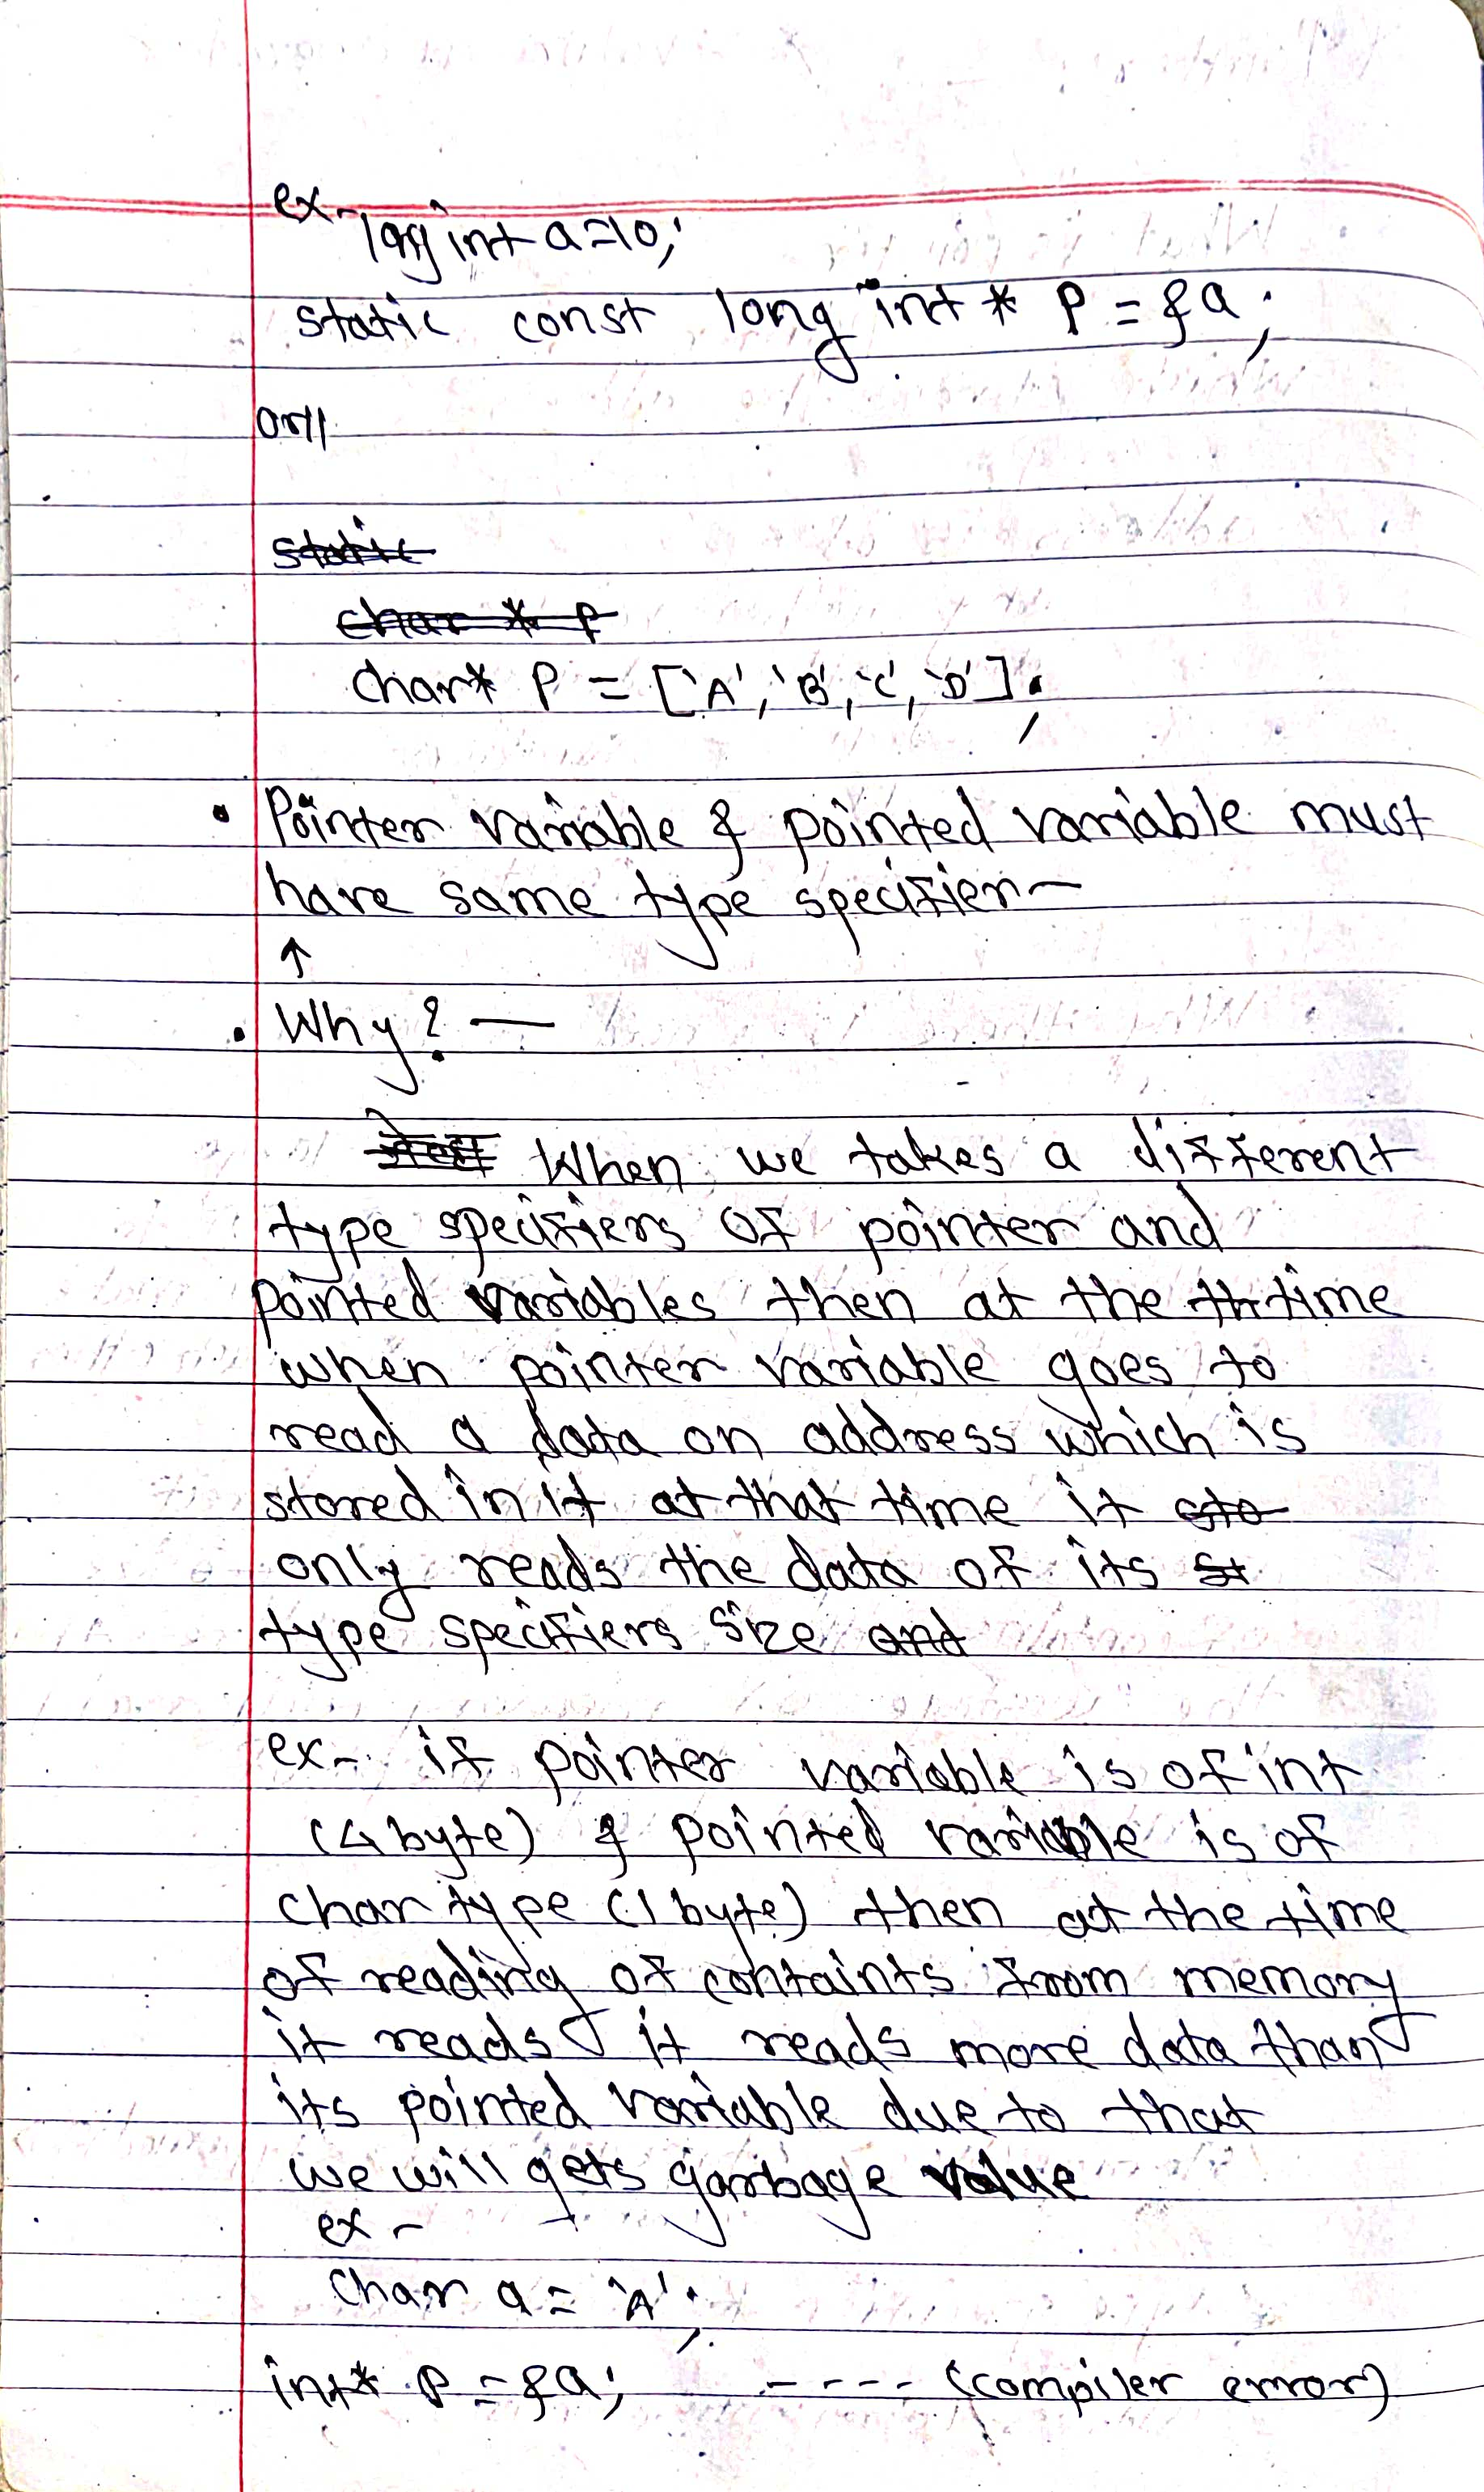 ex-
long int a=10;
static const long int * p = &a;
or//
static
char * p
char* p = ['A', 'B', 'C', 'D'];
• Pointer variable & pointed variable must
have same type specifier—
↑
• Why? —
When we takes a different
type specifiers of pointer and
pointed variables then at the th time
when pointer variable goes to
read a data on address which is
stored in it at that time it sto
only reads the data of its st
type specifiers size and
ex- if pointer variable is of int
(4 byte) & pointed variable is of
char type (1 byte) then at the time
of reading of containts from memory
it reads it reads more data than
its pointed variable due to that
we will gets garbage value
ex -
char a = 'A';
int* p = &a; ---- (compiler error)